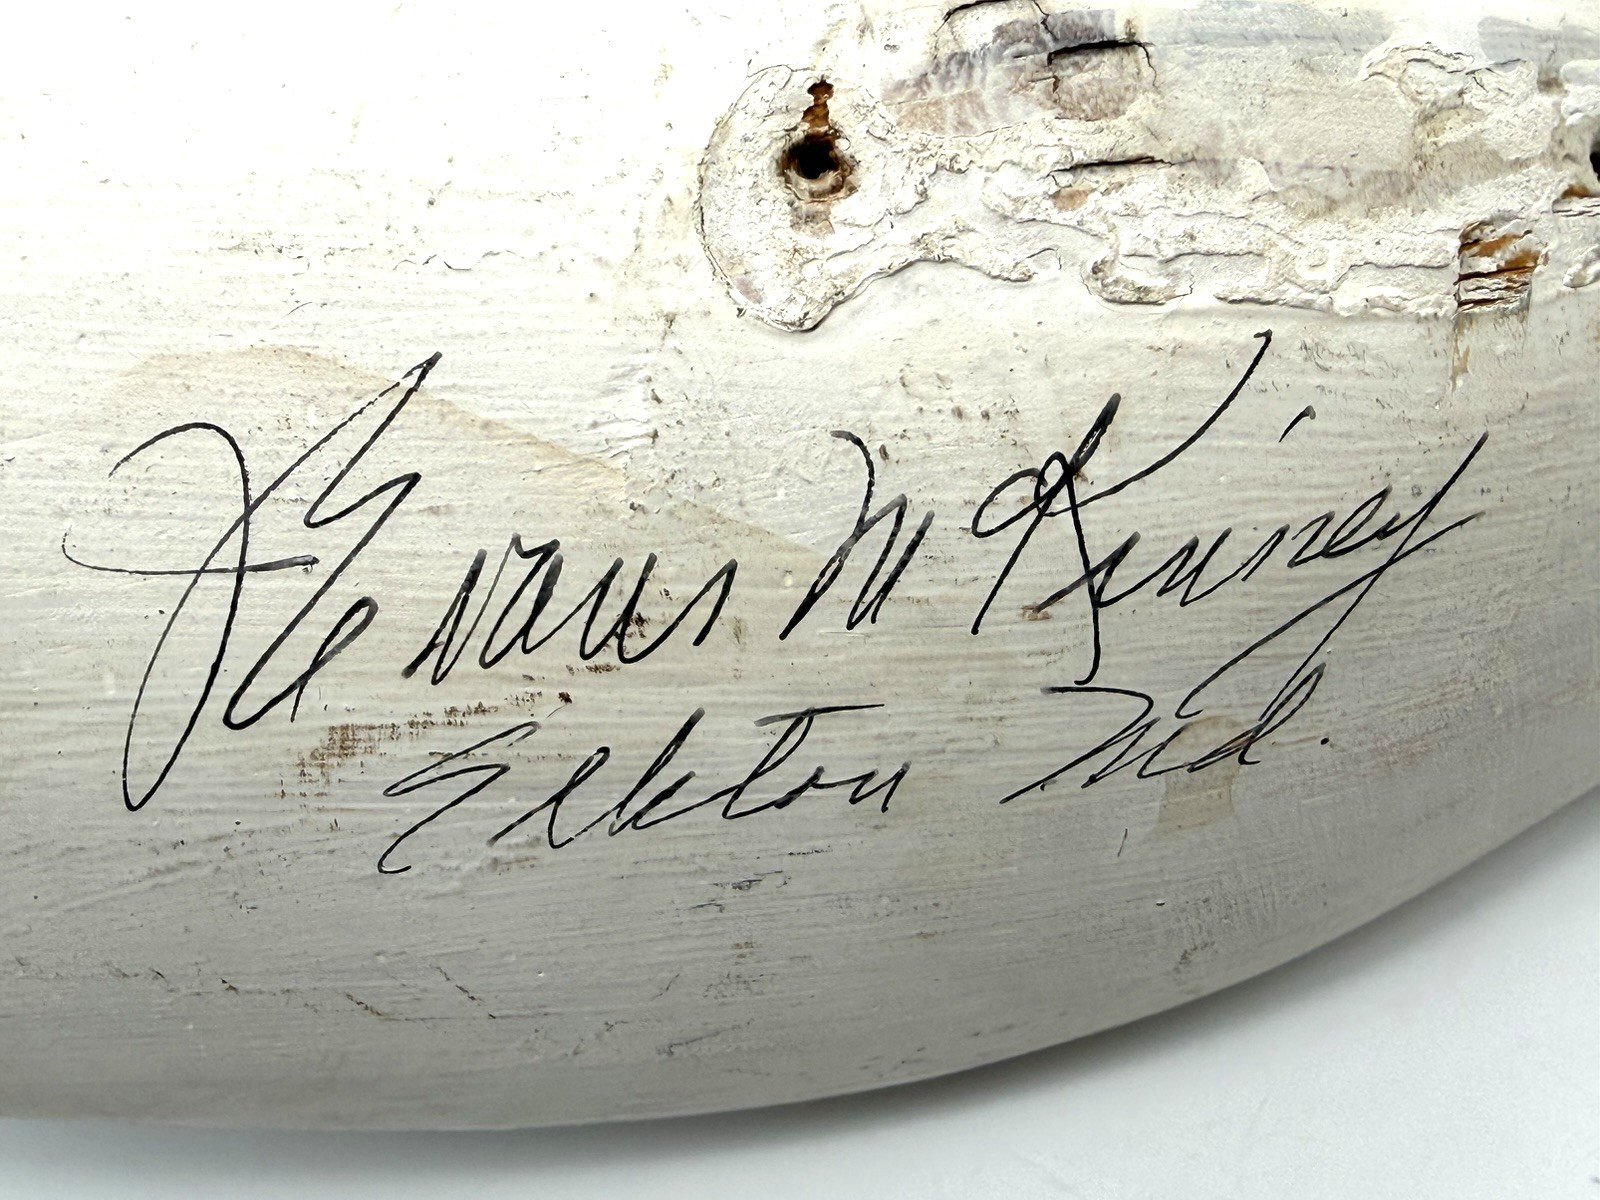 J Evans McKinney
Elkton Md.